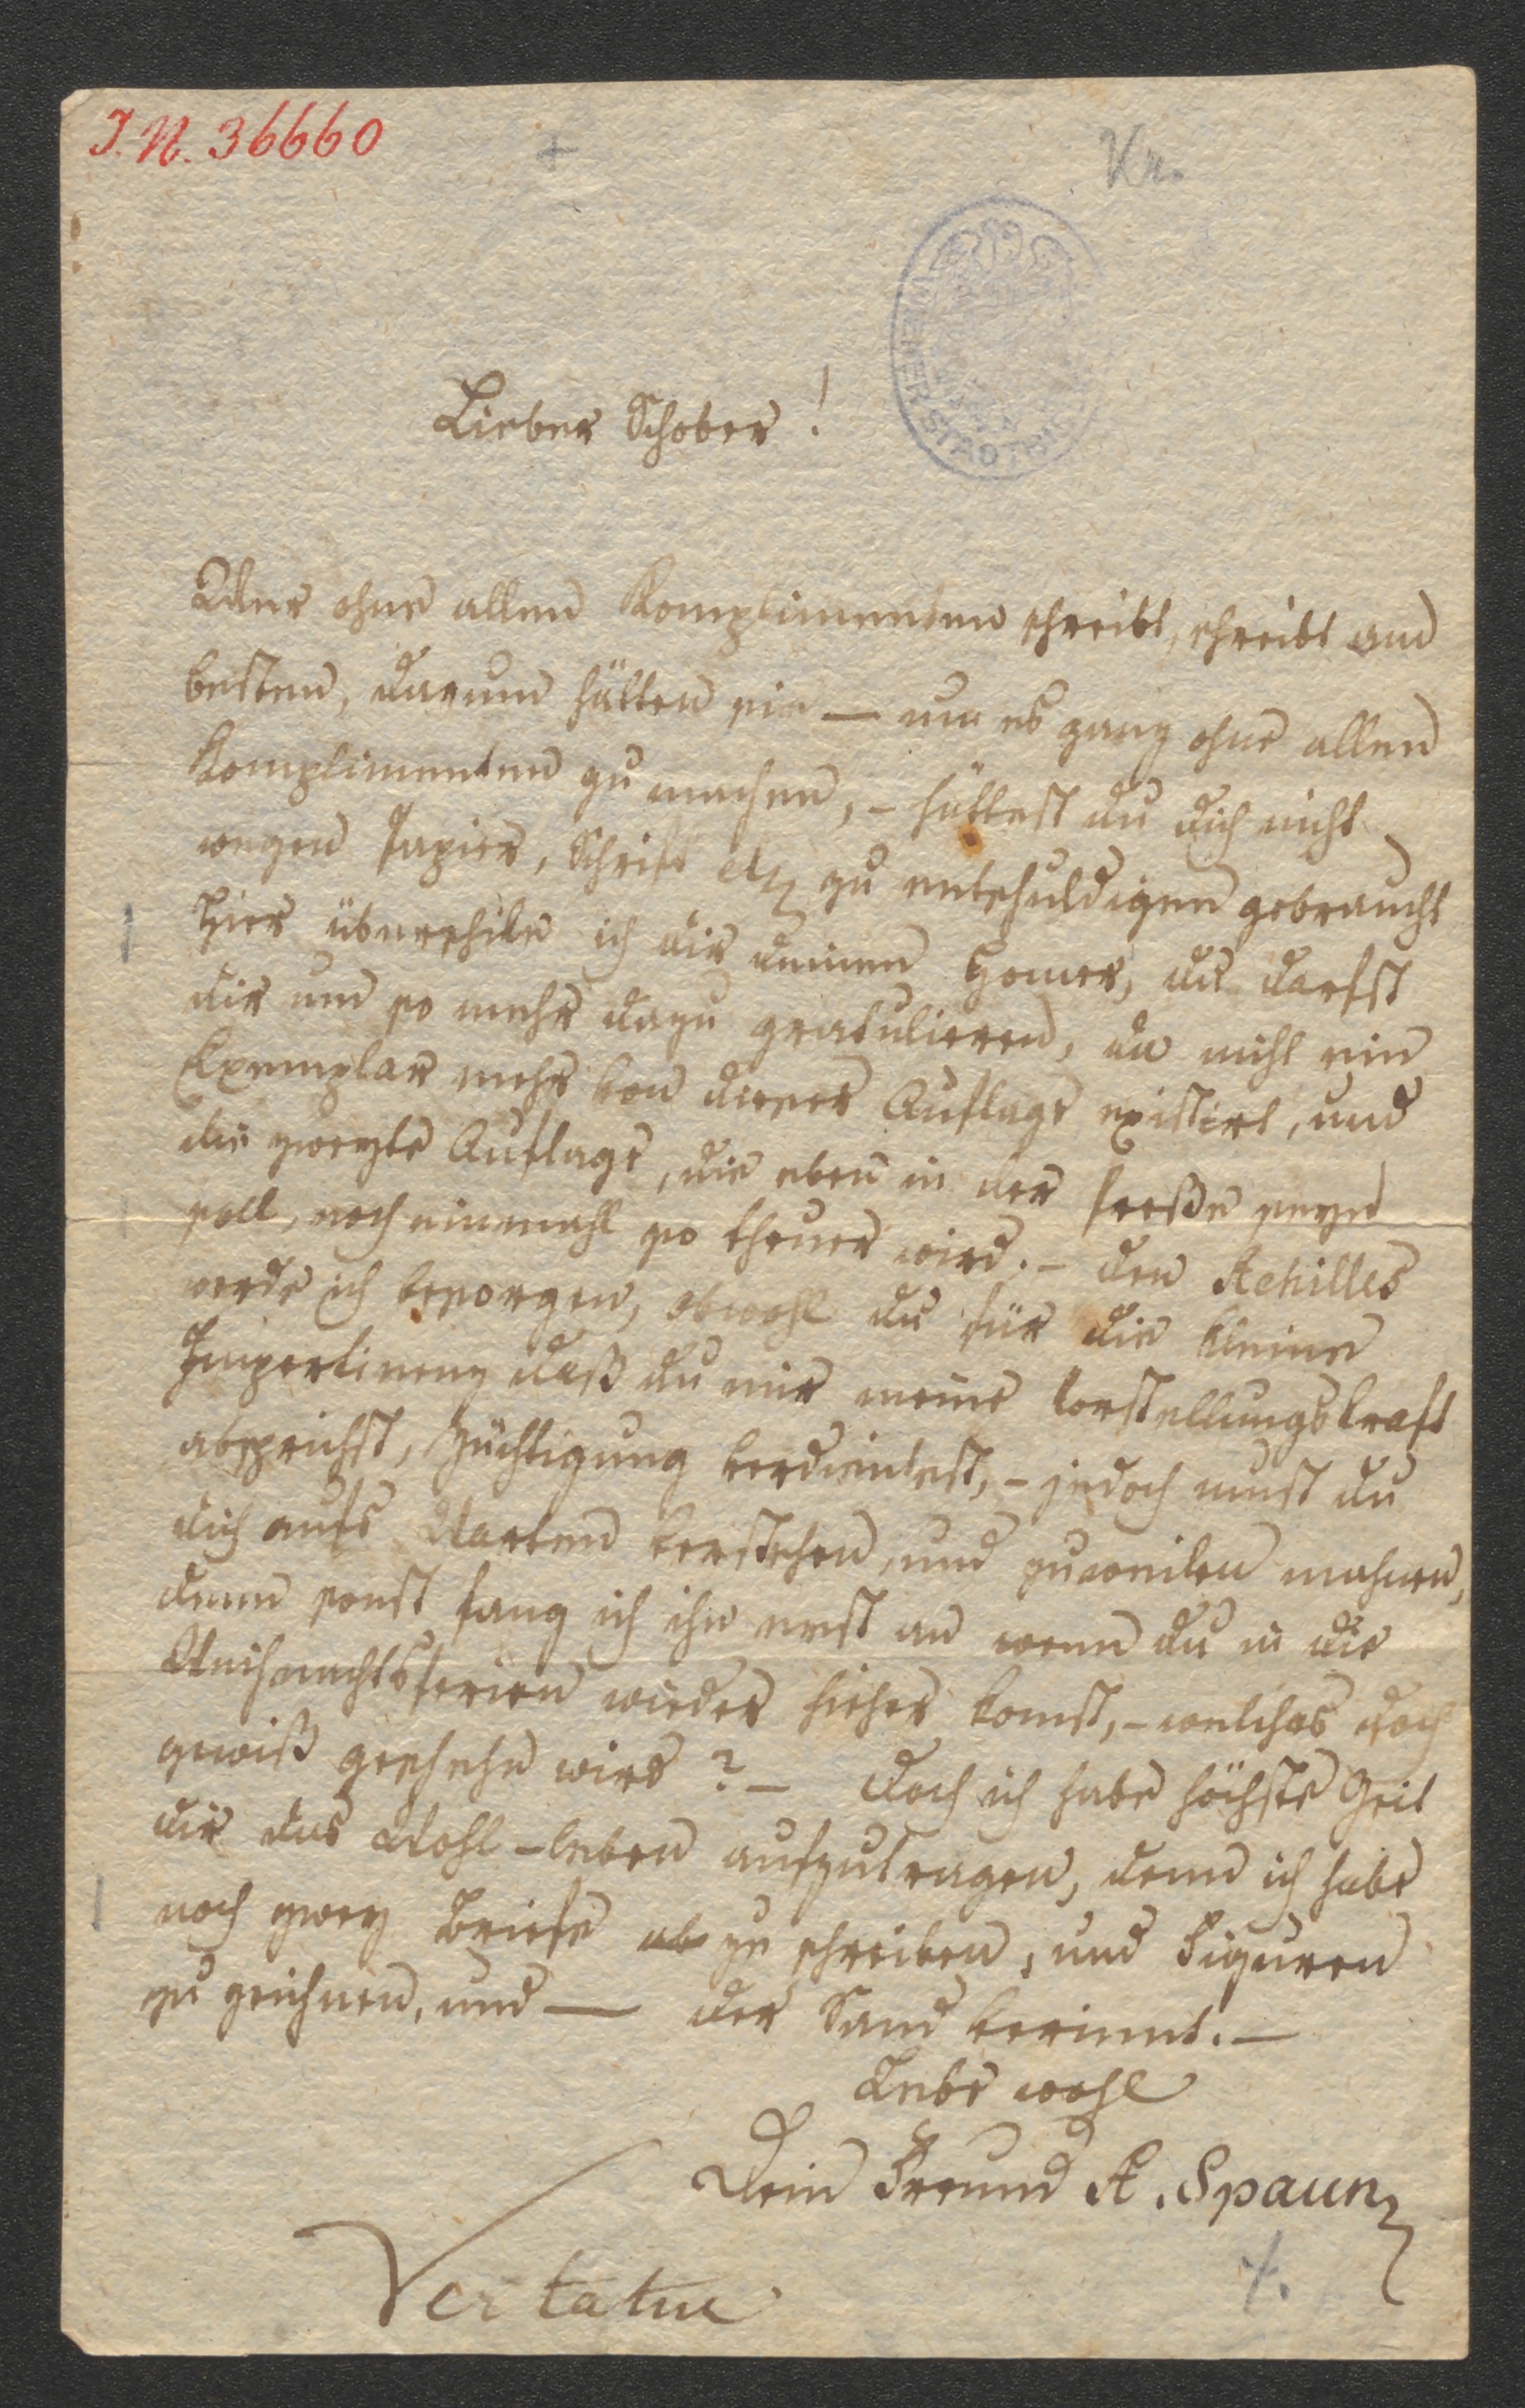 J.N. 36660
Kr.
WIENER STADTBI
Lieber Schober!
Wer ohne allen Komplimenten schreibt, schreibt am
besten, darum hätten sie — um es ganz ohne allen
Komplimenten zu machen, – hättest du dich nicht
wegen Papier, Schrift etz zu entschuldigen gebraucht
Hier überschike ich dir deinen Homer, du darfst
dir um so mehr dazu gratulieren, da nicht ein
Exemplar mehr von dieser Auflage existirt, und
die zweyte Auflage, die eben in der Preße seyn
soll, noch einmahl so theuer wird. – Den Achilles
werde ich besorgen, obwohl du für die kleine
Impertinenz daß du mir meine Vorstellungskraft
absprichst, Züchtigung verdientest, – jedoch must du
dich aufs Warten verstehen, und zuweilen mahnen,
denn sonst fang ich ihn erst an wenn du in die
Weihnachtsferien wieder hieher komst, – welches doch
gewiß geschehn wird? – Doch ich habe höchste Zeit
dir das Wohl-leben aufzutragen, denn ich habe
noch zwey Briefe ab zu schreiben, und Figuren
zu zeichnen, und — der Sand verinnt. —
Lebe wohl
Dein Freund A. Spaun
Vertatur